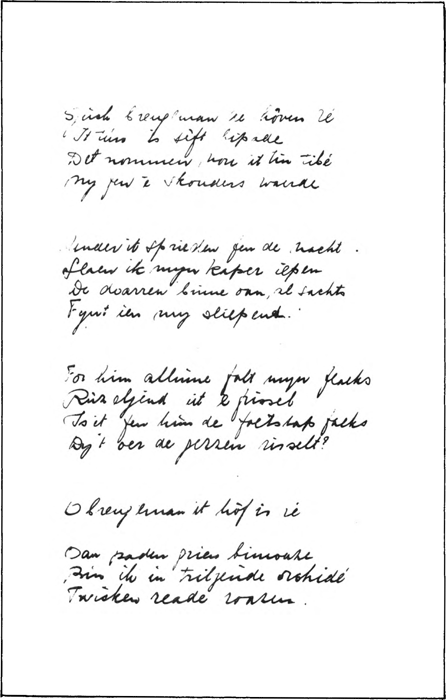 Sjuch breugeman de hôven ré
It is sêft
Det nommen, hou it
My fen 'e skouders waerde
Under it fen de nacht.
Slaen ik myn kaper iepen
De doarren binne oan, al sachts
Fynt ien my sliepend.
For him allinne falt myn flaeks
Rûzeljend út 'e frissel
Is it fen him de foetstap faeks
Dy't oer de gerzen risselt?
O breugeman it hôf is ré
Oan paden grien bimoaze
Bin ik in triljende orchidé
Twisken reade roazen.